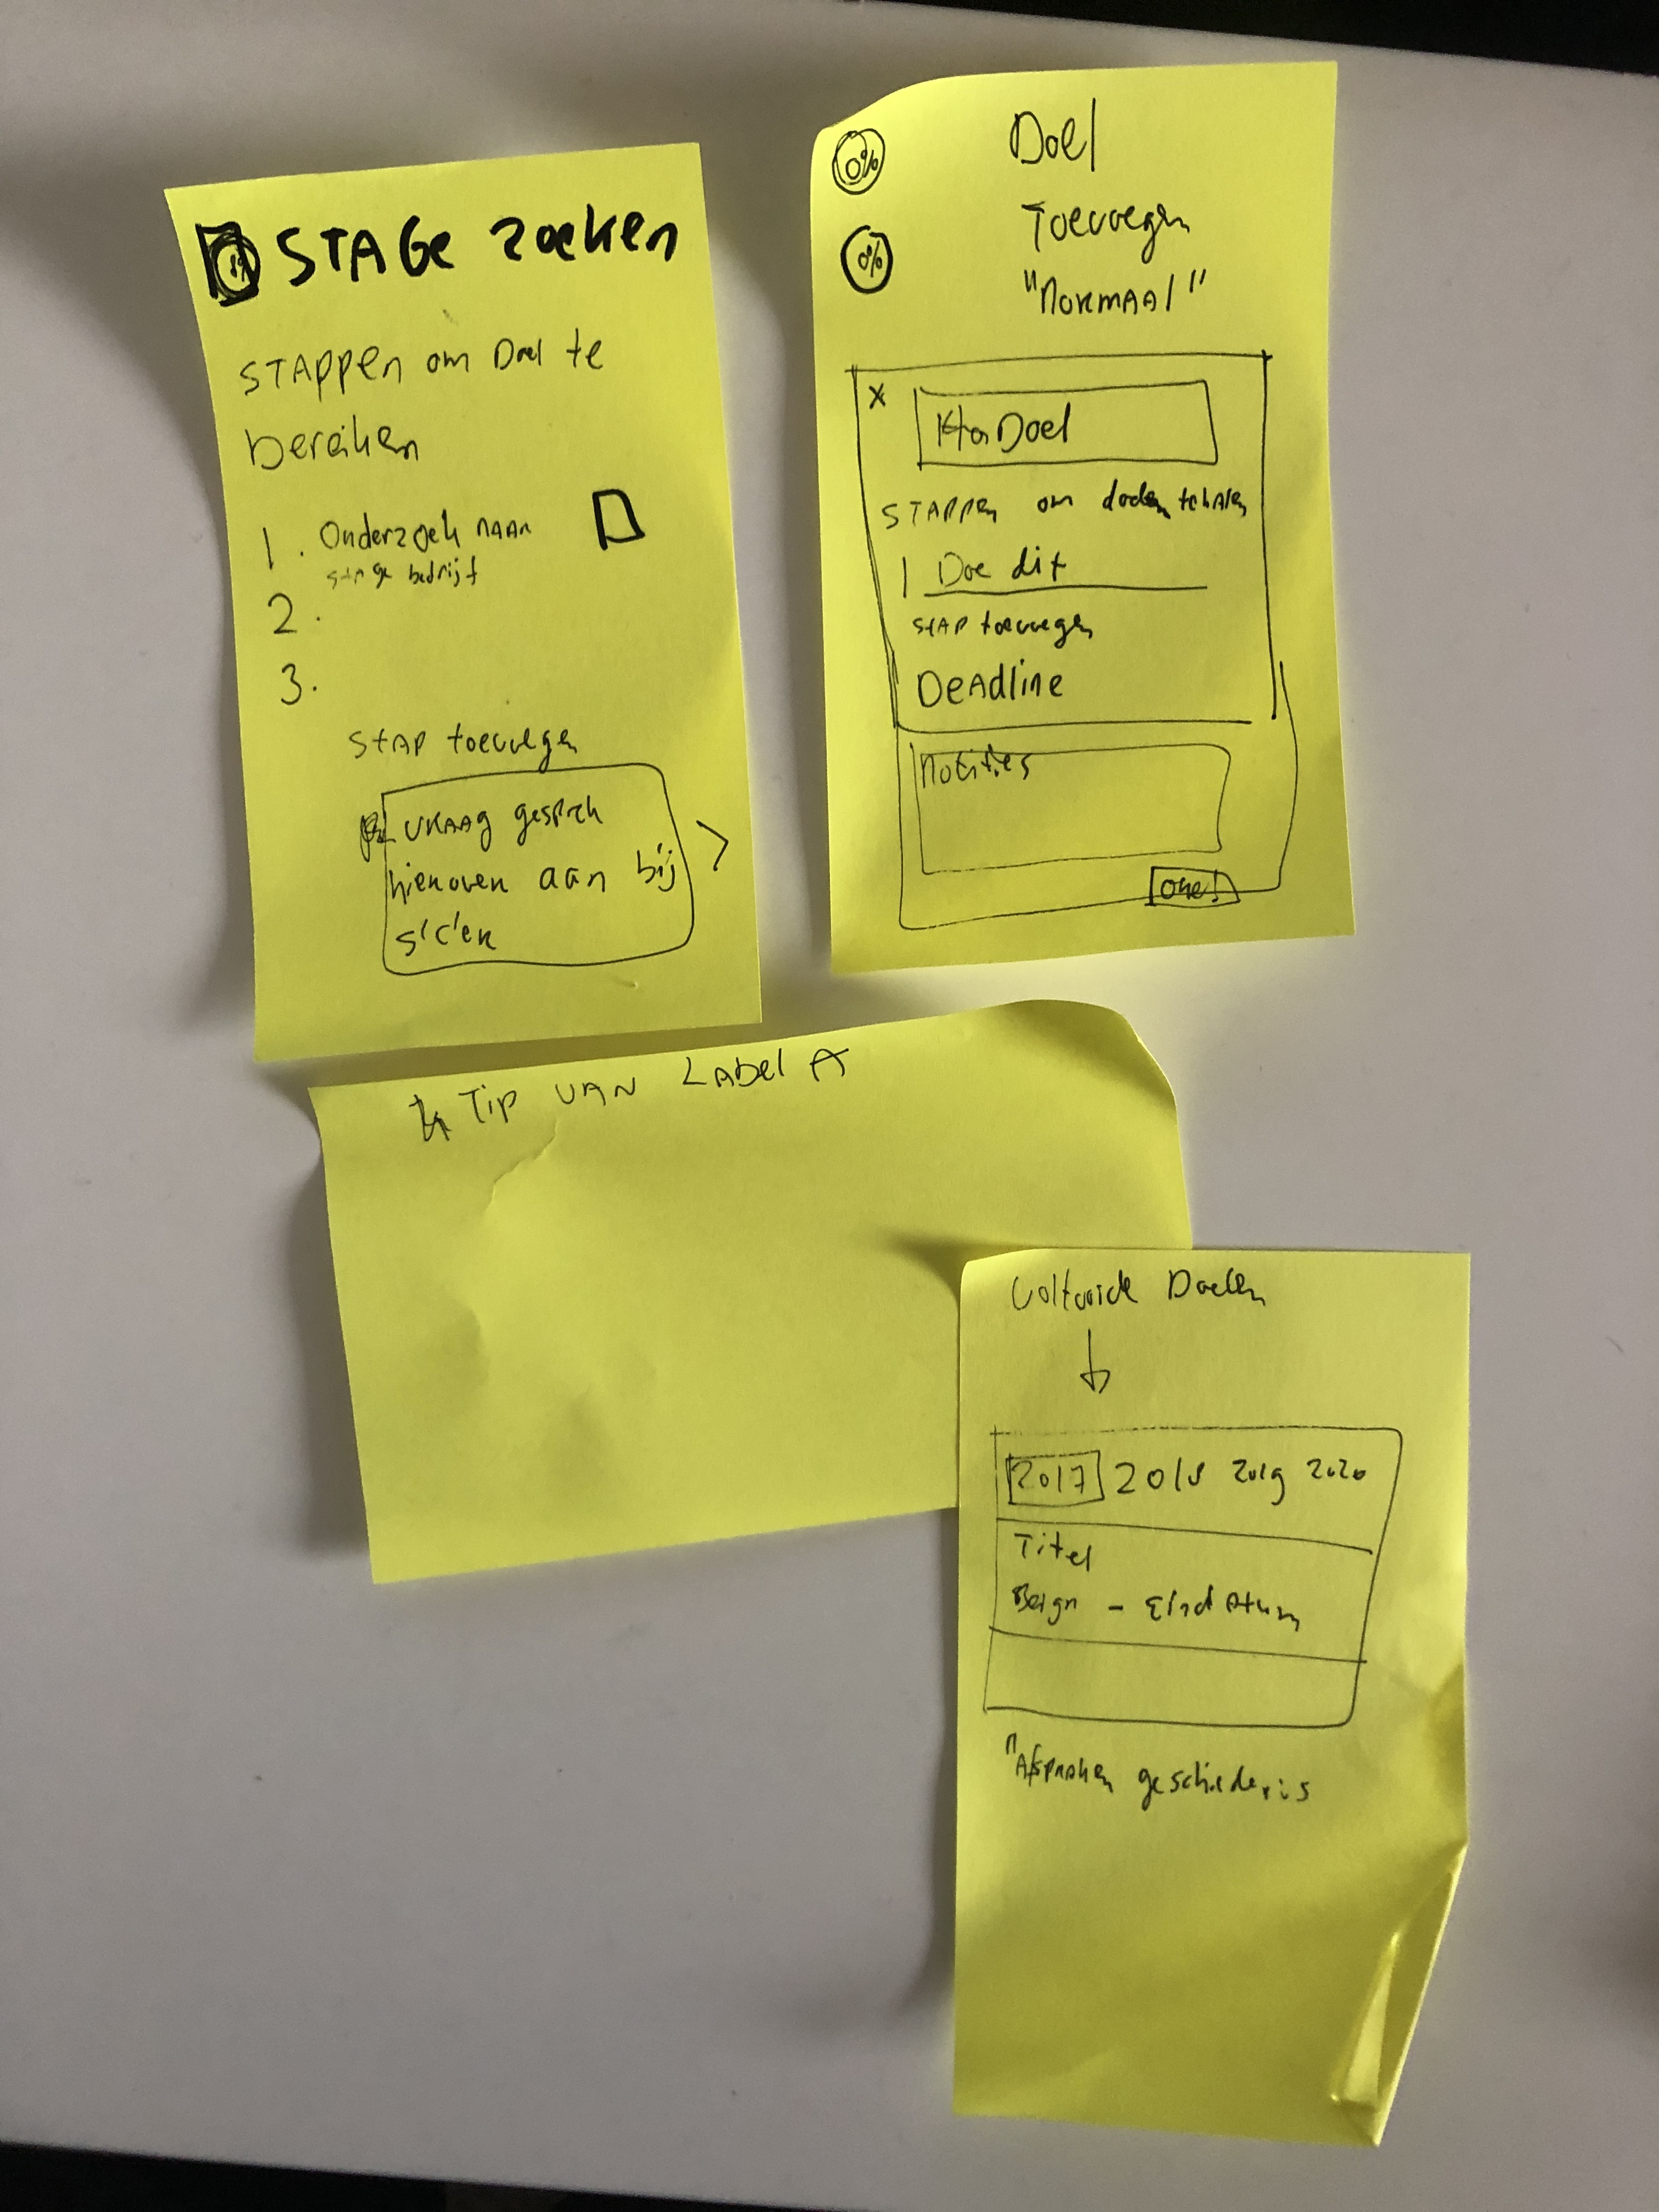 STAGE zoeken
STAPPEN om Doel te
bereiken
1. Onderzoek naar
stage bedrijf
2.
3.
STAP toevoegen
VRAAG gesprek
hierover aan bij
S'C'er
0%
0%
Doel
Toevoegen
"Normaal"
x
Doel
STAPPEN om doelen te halen
1 Doe dit
STAP toevoegen
Deadline
Notities
oke!
Tip VAN Label A
Voltooide Doelen
2017 2018 2019 2020
Titel
Beign - Eind Atum
"Afspraken geschiedenis